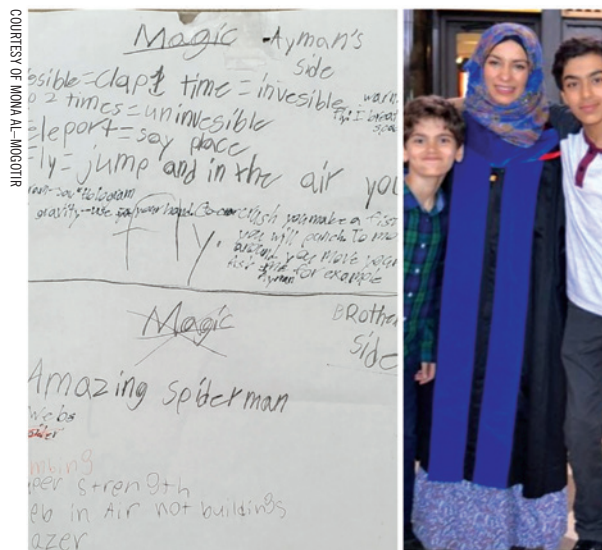 COURTESY OF MONA AL-MOGOTIR
Magic - Ayman's
Side
ssible=clap 1 time = invesible
p 2 times = uninvesible
eleport = say place
Fly = jump and in the air you
Hologram
gravity-use your hand
crush you make a fist
you will punch To mo
you move your
Ask for example
Ayman
fly.
Magic
BRother
Side
Amazing spiderman
webs
mbing
per strength
eb in Air not buildings
azer